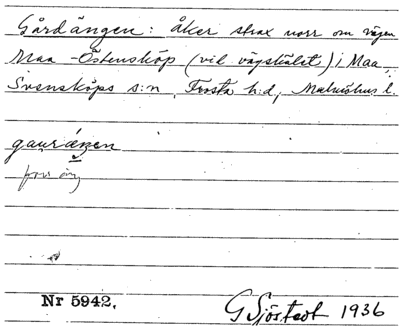 Gårdängen: åker strax norr om vägen
Maa - Östenskóp (vil vägskälet) i Maa,
Svensköps s:n, Frosta h:d, Malmöhus l.
gauræŋen
Nr 5942.
G Sjöstedt 1936